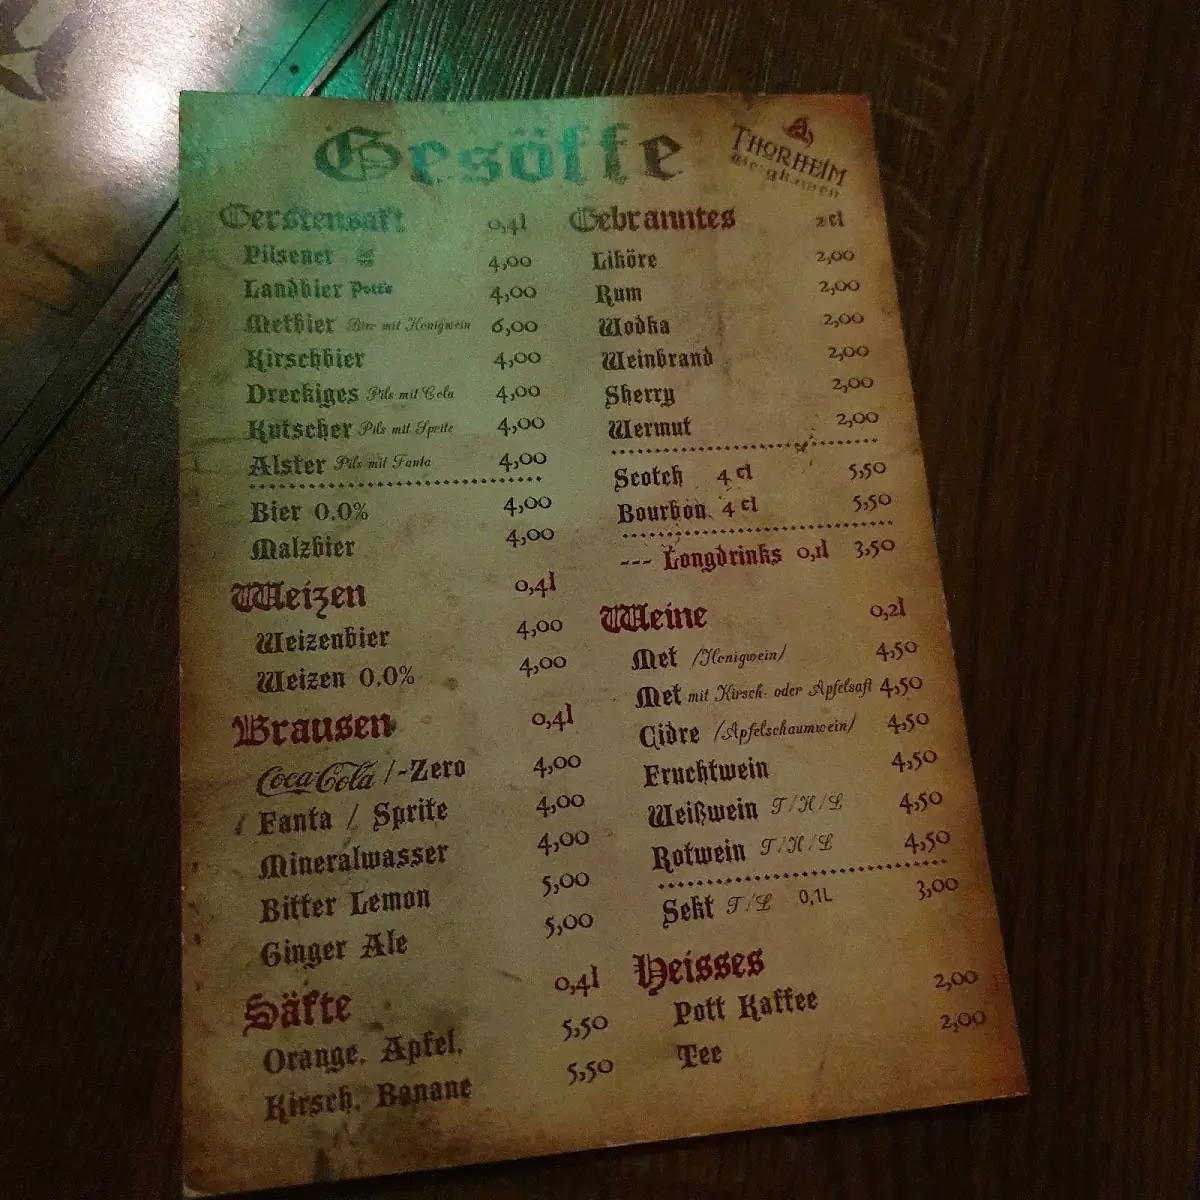 Gesöffe
THORHEIM
Bergkamen
Gerstensaft 0,4l
Pilsener 4,00
Landbier Pott's 4,00
Metbier Bier mit Honigwein 6,00
Kirschbier 4,00
Dreckiges Pils mit Cola 4,00
Kutscher Pils mit Sprite 4,00
Alster Pils mit Fanta 4,00
Bier 0.0% 4,00
Malzbier 4,00
Weizen 0,4l
Weizenbier 4,00
Weizen 0,0% 4,00
Brausen 0,4l
Coca-Cola /-Zero 4,00
Fanta / Sprite 4,00
Mineralwasser 4,00
Bitter Lemon 5,00
Ginger Ale 5,00
Säfte 0,4l
Orange, Apfel, 5,50
Kirsch, Banane 5,50
Gebranntes 2 cl
Liköre 2,00
Rum 2,00
Wodka 2,00
Weinbrand 2,00
Sherry 2,00
Wermut 2,00
Scotch 4 cl 5,50
Bourbon 4 cl 5,50
--- Longdrinks 0,1l 3,50
Weine 0,2l
Met /Honigwein/ 4,50
Met mit Kirsch- oder Apfelsaft 4,50
Cidre /Apfelschaumwein/ 4,50
Fruchtwein 4,50
Weißwein T/H/L 4,50
Rotwein T/H/L 4,50
Sekt T/L 0,1L 3,00
Heisses
Pott Kaffee 2,00
Tee 2,00